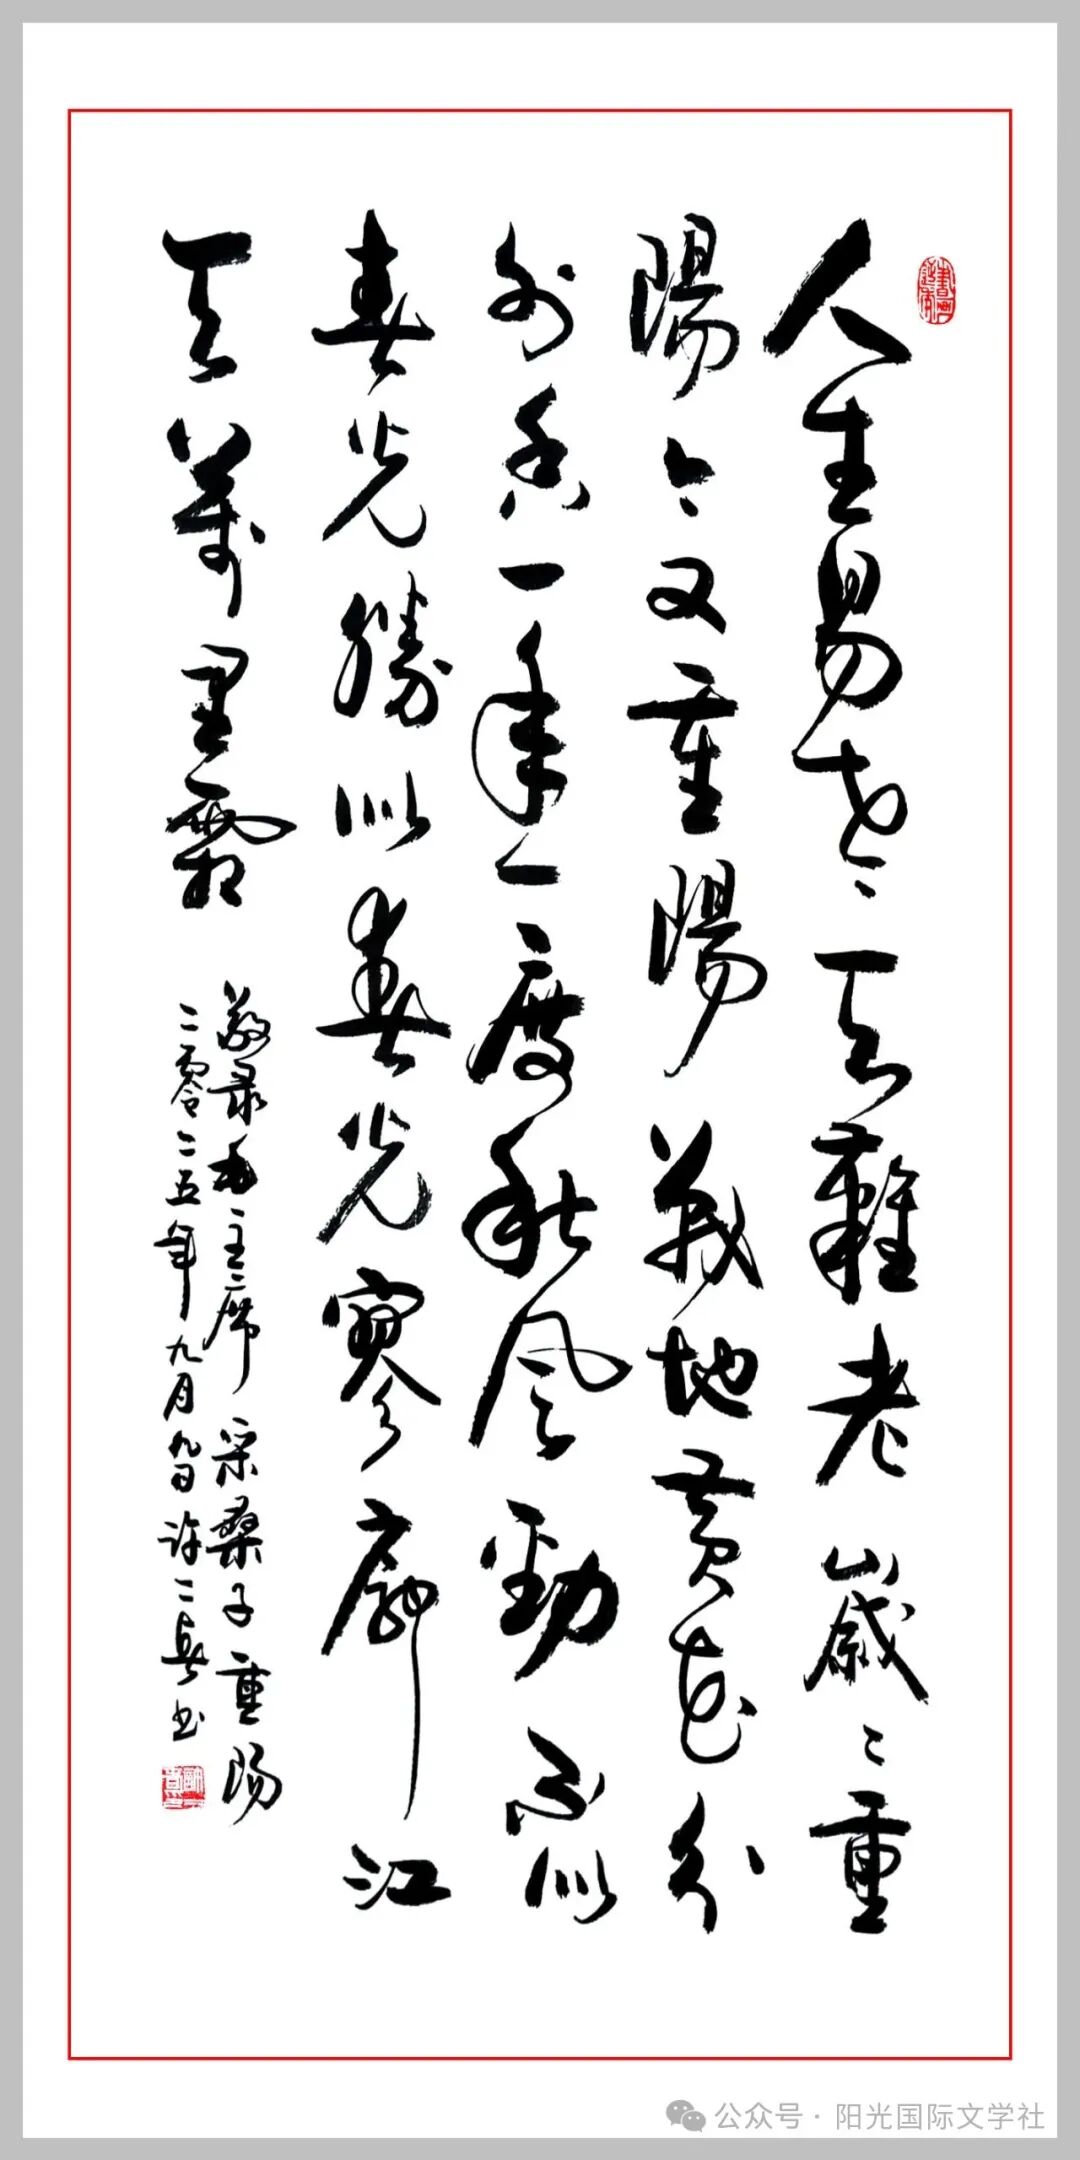 人生易老天難老歲〻重
陽今又重陽戰地黃花分
外香一年一度秋風勁不似
春光勝似春光寥廓江
天萬里霜
敬录毛主席 采桑子重陽
二零二五年九月九日许二书
公众号 · 阳光国际文学社